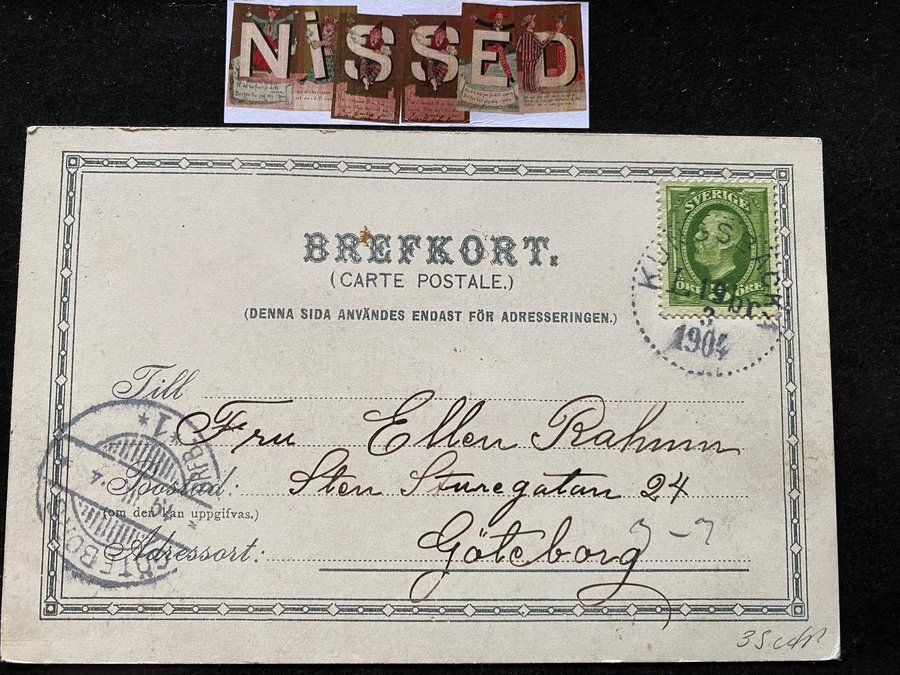 NiSSED
BREFKORT.
(CARTE POSTALE.)
(DENNA SIDA ANVÄNDES ENDAST FÖR ADRESSERINGEN.)
SVERIGE
ÖRE ÖRE
KUNGSBACKA
1904
Till
Fru Ellen Rahmn
Bostad: Sten Sturegatan 24
(om den kan uppgifvas.)
Adressort: Göteborg
GÖTEBORG
1